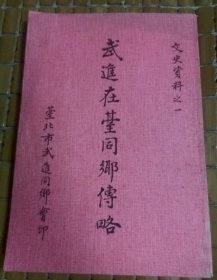 文史資料之一
武進在臺同鄉傳略
臺北市武進同鄉會印